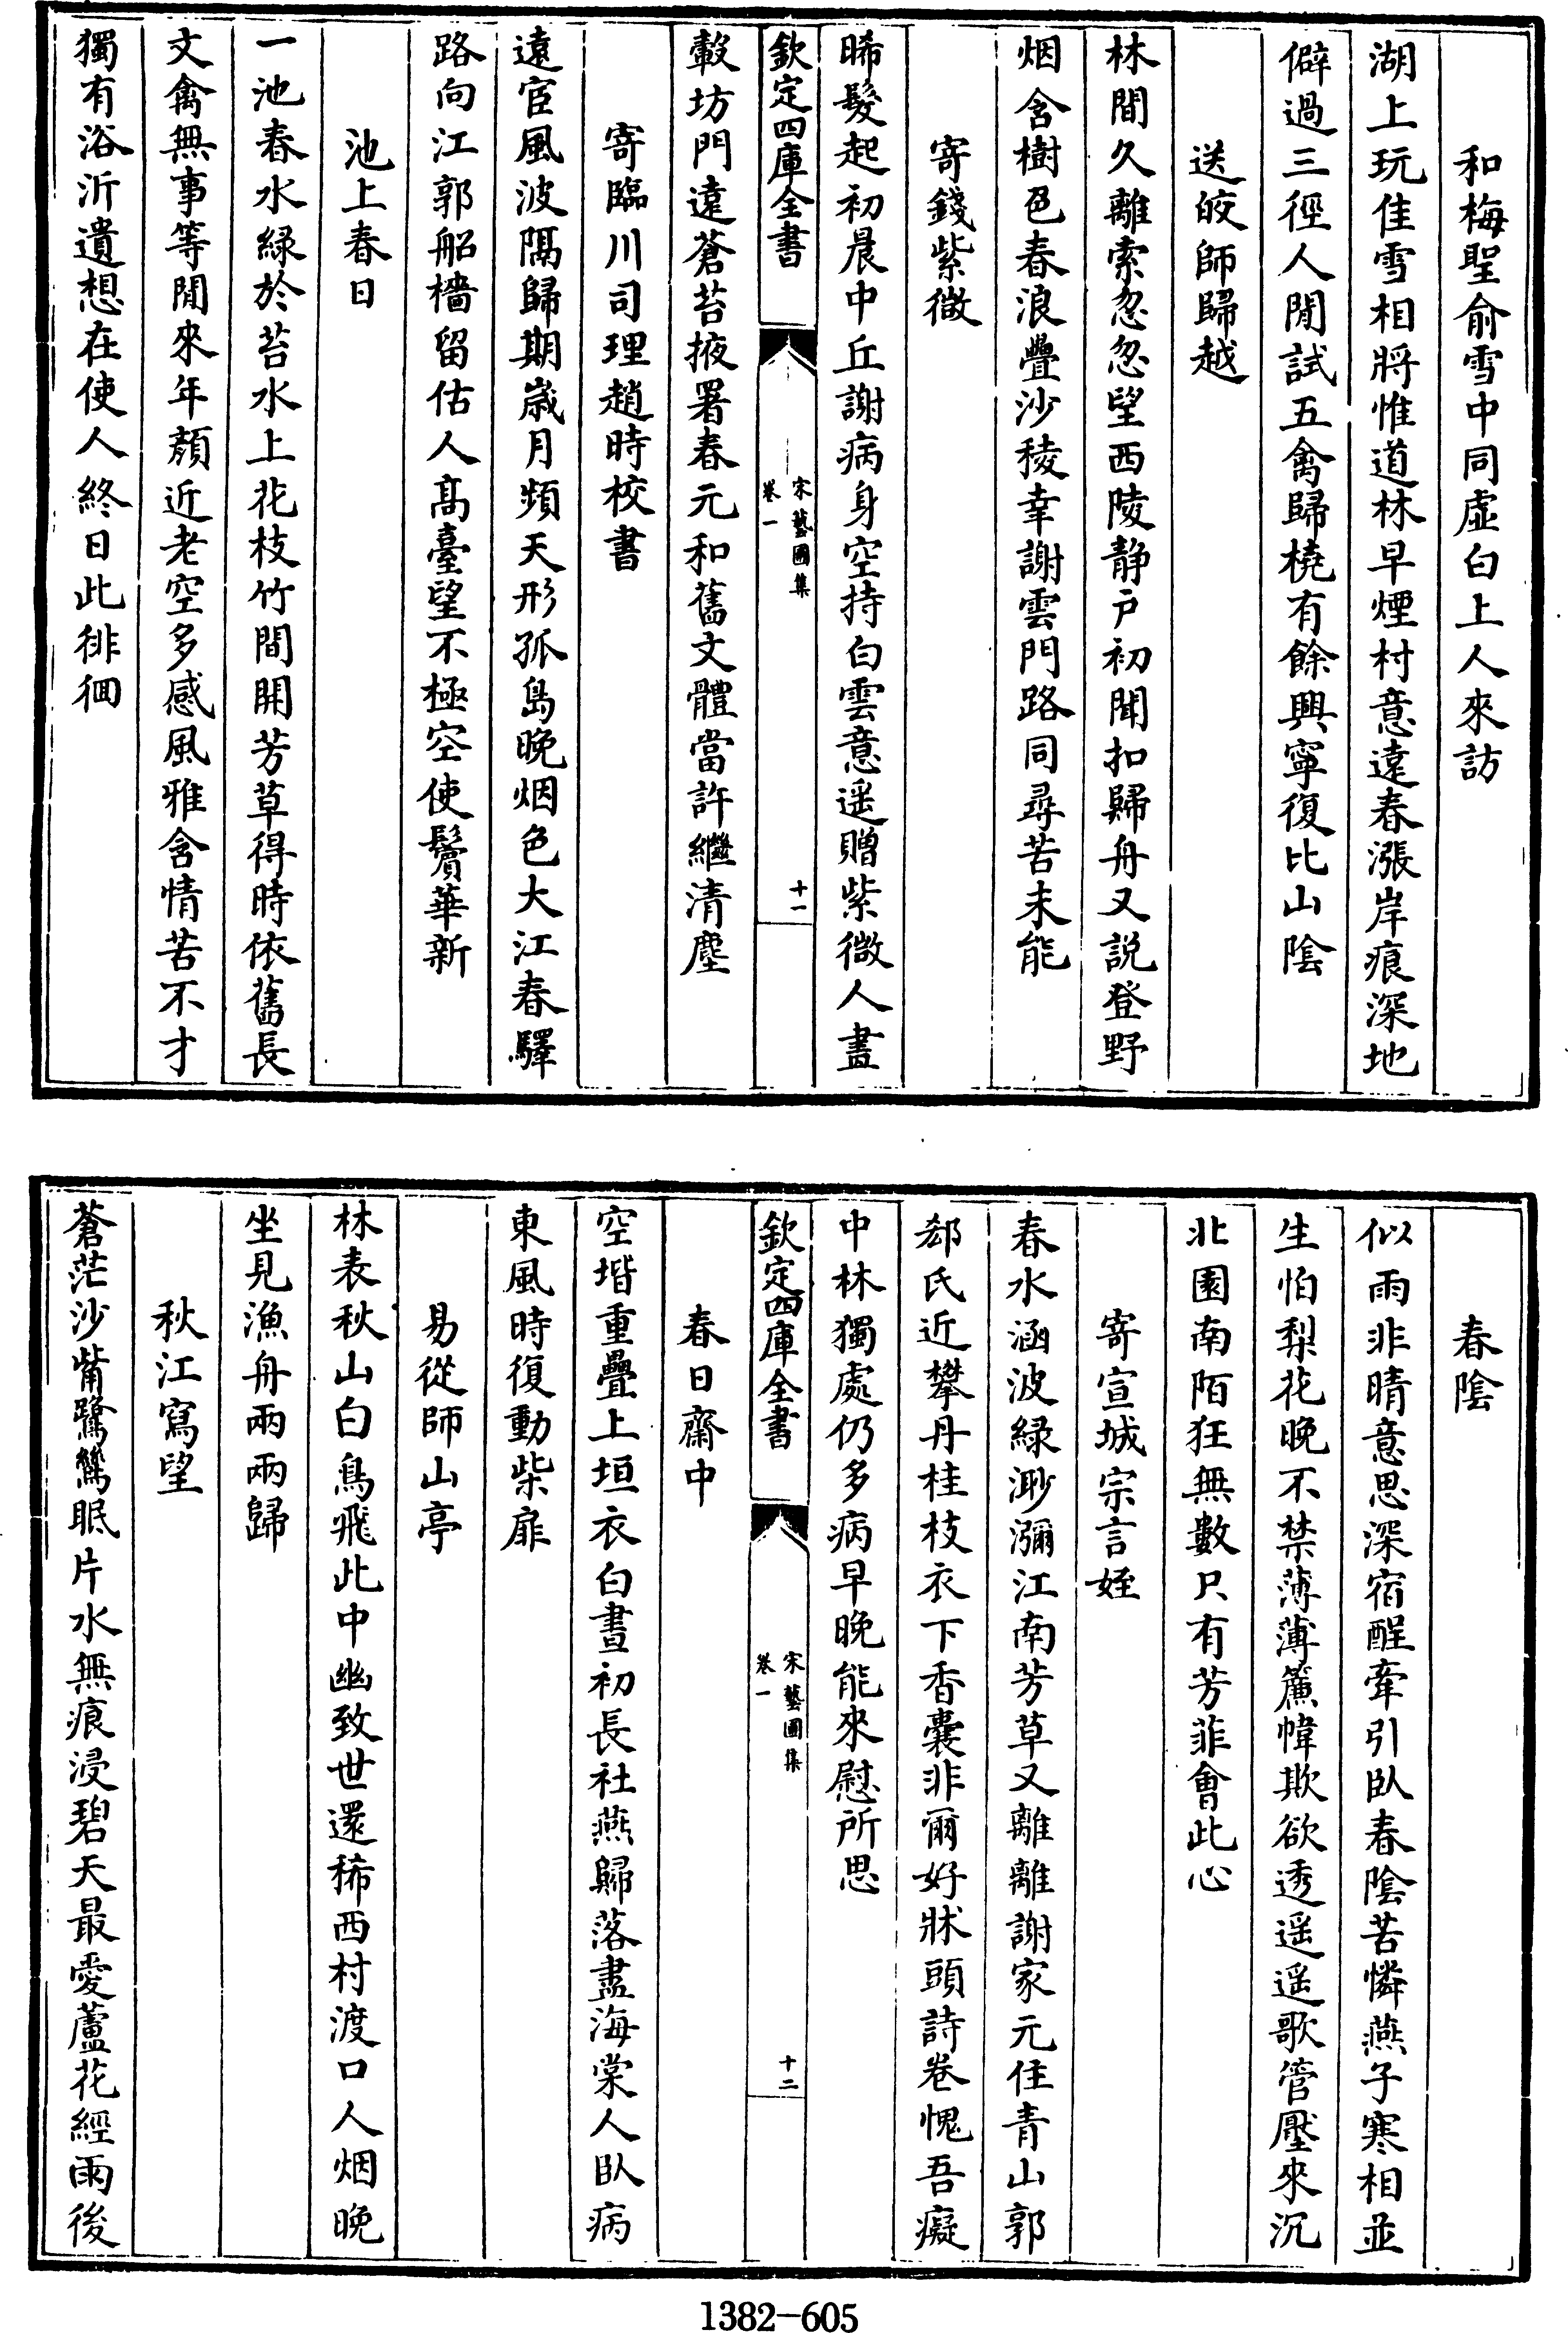 和梅聖俞雪中同虛白上人來訪
湖上玩佳雪相將惟道林早煙村意遠春漲岸痕深地
僻過三徑人閒試五禽歸橈有餘興寧復比山隂
送皎師歸越
林間久離索忽忽望西陵静户初聞扣歸舟又説登野
烟含樹色春浪疊沙稜幸謝雲門路同尋苦未能
寄錢紫微
晞髮起初晨中丘謝病身空持白雲意遥贈紫微人晝
欽定四庫全書
宋藝圃集
卷一
十一
轂坊門遠蒼苔掖署春元和舊文體當許繼清塵
寄臨川司理趙時校書
遠宦風波隅歸期歲月頻天形孤島晚烟色大江春驛
路向江郭船檣留估人髙臺望不極空使鬢華新
池上春日
一池春水緑於苔水上花枝竹間開芳草得時依舊長
文禽無事等閒來年顔近老空多感風雅含情苦不才
獨有浴沂遺想在使人終日此徘徊
春隂
似雨非晴意思深宿酲牽引臥春隂苦憐燕子寒相並
生怕梨花晚不禁薄薄簾幃欺欲透遥遥歌管壓來沉
北園南陌狂無數只有芳菲會此心
寄宣城宗言姪
春水涵波緑渺瀰江南芳草又離離謝家元住青山郭
郄氏近攀丹桂枝衣下香囊非爾好牀頭詩卷愧吾癡
中林獨處仍多病早晚能來慰所思
欽定四庫全書
宋藝圃集
卷一
十二
春日齋中
空堦重疊上垣衣白晝初長社燕歸落盡海棠人臥病
東風時復動柴扉
易從師山亭
林表秋山白鳥飛此中幽致世還稀西村渡口人烟晚
坐見漁舟兩兩歸
秋江寫望
蒼茫沙觜鷺鷥眠片水無痕浸碧天最愛蘆花經雨後
1382-605